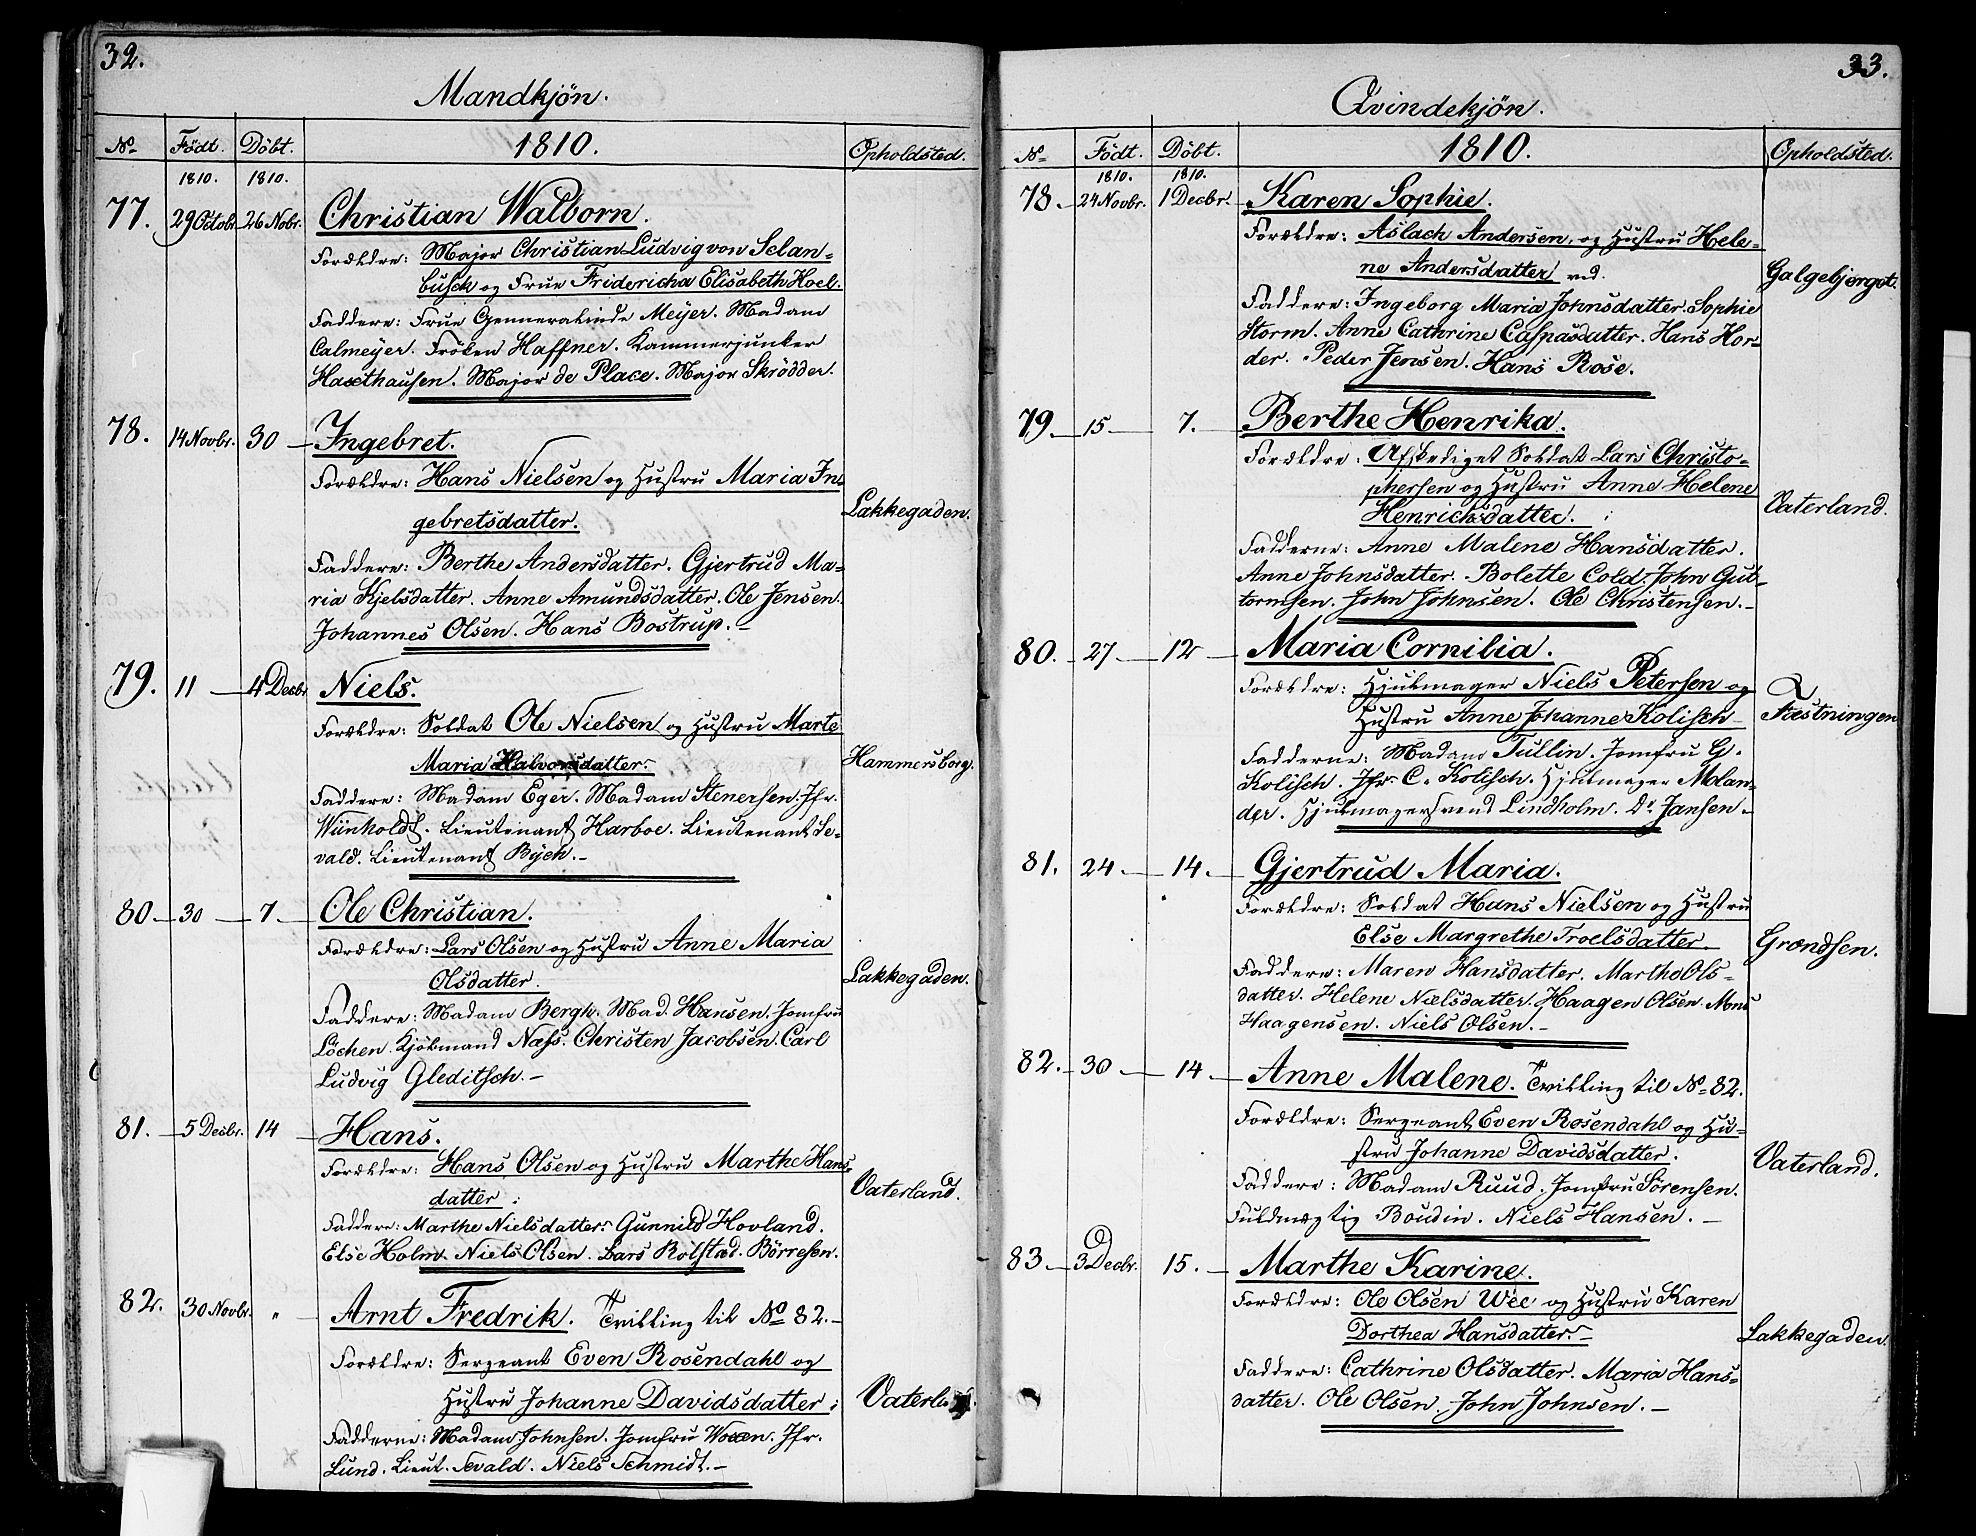 32.
Mandkjön.
No Födt. Döbt. 1810. Opholdsted.
1810. 1810.
77. 29 Octobr. 26 Nobr. Christian Walborn.
Forældre: Major Christian Ludvig von Selan-
busch og Frue Fridericha Elisabeth Hoel.
Faddere: Frue Generalinde Meyer. Madam
Calmeyer. Fröken Haffner. Kammerjunker
Haxthausen. Major de Place. Major Skrödder.
78. 14 Novbr. 30 Ingebret.
Forældre: Hans Nielsen og Hustru Maria In-
gebretsdatter. Lakkegaden.
Faddere: Berthe Andersdatter. Gjertrud Ma-
ria Kjelsdatter. Anne Amundsdatter. Ole Jensen.
Johannes Olsen. Hans Bostrup.
79. 11 4 Decbr. Niels.
Forældre: Soldat Ole Nielsen og Hustru Marte
Maria Halvorsdatter. Hammersborg.
Faddere: Madam Eger. Madam Stenersen. Jfr.
Wünholdt. Lieutenant Harboe. Lieutenant Se-
vald. Lieutenant Bÿch.
80 30 7 Ole Christian.
Forældre: Lars Olsen og Hustru Anne Maria
Olsdatter. Lakkegaden.
Faddere: Madam Bergh. Mad. Hansen. Jomfru
Löchen. Kjöbmand Næss. Christen Jacobsen. Carl
Ludvig Gleditsch.
81. 5 Decbr. 14 Hans.
Forældre: Hans Olsen og Hustru Marthe Hans-
datter: Vaterland.
Faddere: Marthe Nielsdatter. Gunnild Hovland.
Else Holm. Niels Olsen. Lars Rolstad. Börresen.
82. 30 Novbr. " Arnt Fredrik. Tvilling til No 82.
Forældre: Sergeant Even Rosendahl og
Hustru Johanne Davidsdatter: Vaterland.
Fadderne: Madam Johnsen. Jomfru Woxen. Jfr.
Lund. Lieut. Sevald. Niels Schmidt.
33.
Qvindekjön.
No Födt. Döbt. 1810. Opholdsted.
1810. 1810.
78. 24 Novbr. 1 Decbr. Karen Sophie.
Forældre: Aslach Andersen, og Hustru Hele-
ne Andersdatter ved. Galgebjerget.
Faddere: Ingeborg Maria Johnsdatter. Sophie
Storm. Anne Cathrine Caspasdatter. Hans Hor-
der. Peder Jensen. Hans Rose.
79. 15 7. Berthe Henrika.
Forældre: Afskediget Soldat Lars Christo-
phersen og Hustru Anne Helene
Henrichsdatter. Vaterland.
Fadderne: Anne Malene Hansdatter.
Anne Johnsdatter. Bolette Cold. John Gut-
tormsen. John Johnsen. Ole Christensen.
80. 27 12 Maria Cornilia.
Forældre: Hjulmager Niels Petersen og
Hustru Anne Johanne Kolisch Fæstningen
Fadderne: Madam Tullin. Jomfru G.
Kolisch. Jfr. C. Kolisch. Hjulmager Molan-
der. Hjulmagersvend Lindholm. Do Jansen.
81. 24 14. Gjertrud Maria.
Forældre: Soldat Hans Nielsen og Hustru
Else Margrethe Troelsdatter. Grændsen.
Faddere: Maren Hansdatter. Martho Ols-
datter. Helene Nielsdatter. Haagen Olsen. Mons
Haagensen. Niels Olsen.
82. 30 14 Anne Malene. Tvilling til No 82.
Forældre: Sergeant Even Rosendahl og Hu-
stru Johanne Davidsdatter. Vaterland.
Faddere: Madam Ruud. Jomfru Sörensen.
Fuldmægtig Boudin. Niels Hansen.
83. 3 Decbr. 15. Marthe Karine.
Forældre: Ole Olsen Wee og Hustru Karen
Dorthea Hansdatter. Lakkegaden.
Faddere: Cathrine Olsdatter. Maria Hans-
datter. Ole Olsen. John Johnsen.